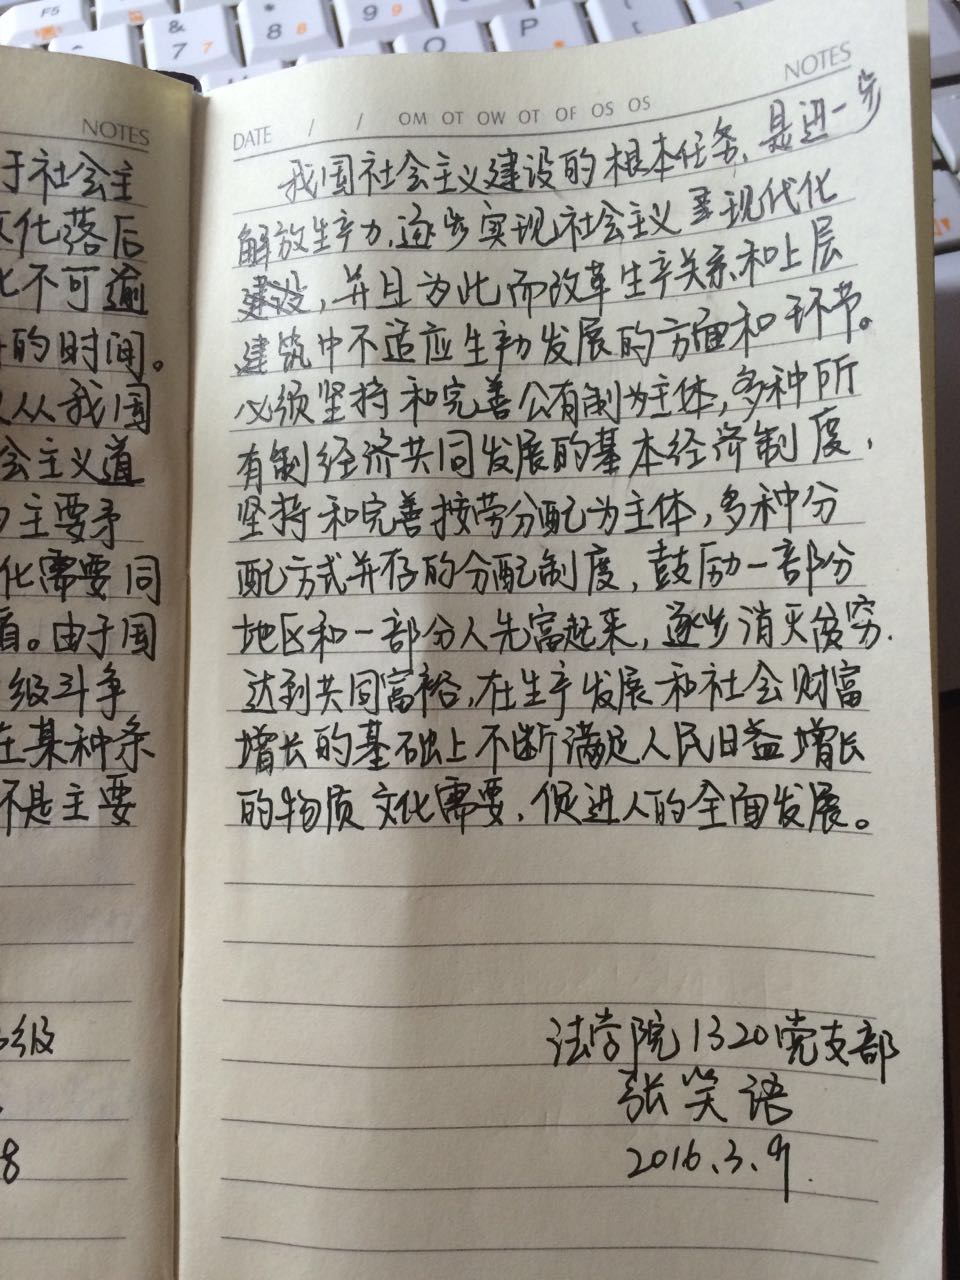 NOTES
于社会主
文化落后
化不可逾
的时间。
从我国
会主义道
主要矛
化需要同
盾。由于国
级斗争
在某种条
不是主要
级
8
NOTES
DATE / / OM OT OW OT OF OS OS
我国社会主义建设的根本任务，是进一步
解放生产力，逐步实现社会主义现代化
建设，并且为此而改革生产关系和上层
建筑中不适应生产力发展的方面和环节。
必须坚持和完善公有制为主体，多种所
有制经济共同发展的基本经济制度，
坚持和完善按劳分配为主体，多种分
配方式并存的分配制度，鼓励一部分
地区和一部分人先富起来，逐步消灭贫穷，
达到共同富裕，在生产发展和社会财富
增长的基础上不断满足人民日益增长
的物质文化需要，促进人的全面发展。
法学院1320党支部
张笑语
2016.3.9
F5
&
7
7
*
8
8
(
9
9
O
P